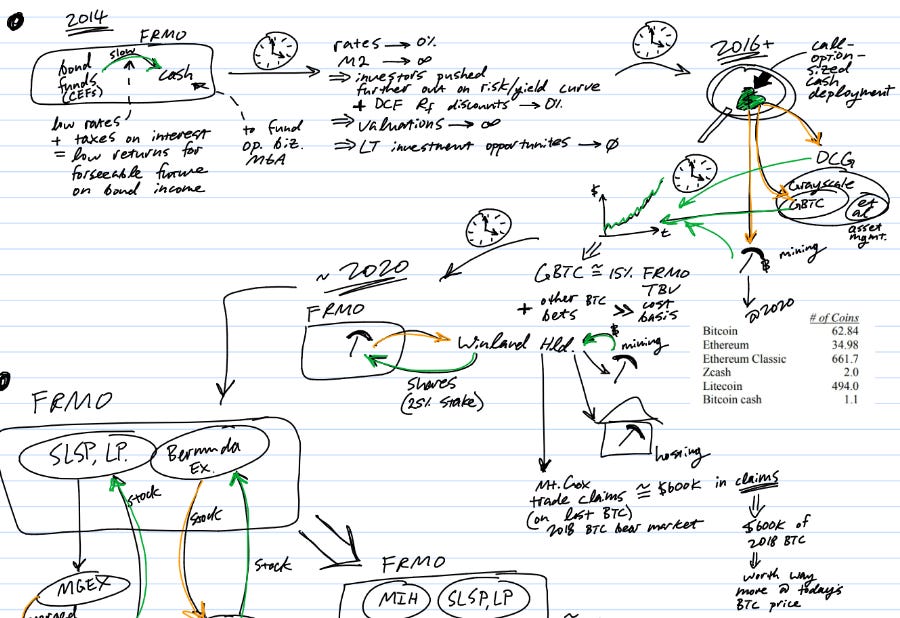 2014
FRMO
bond
funds
(CEFs)
slow
cash
low rates
+ taxes on interest
= low returns for
forseeable future
on bond income
to fund
op. biz.
M&A
rates → 0%
M2 → ∞
⇒ investors pushed
further out on risk/yield curve
+ DCF Rf discounts → 0%
⇒ valuations → ∞
⇒ LT investment opportunites → 0
2016+
call-
option-
sized
cash
deployment
DCG
Grayscale
GBTC
et
al
asset
mgmt.
$
t
mining
$
@2020
GBTC ≅ 15% FRMO
TBV
+ other BTC
bets
>> cost
basis
# of Coins
Bitcoin 62.84
Ethereum 34.98
Ethereum Classic 661.7
Zcash 2.0
Litecoin 494.0
Bitcoin cash 1.1
~ 2020
FRMO
Winland Hld.
$
mining
shares
(25% stake)
hosting
Mt. Gox
trade claims ≅ $600k in claims
(on lost BTC)
2018 BTC bear market
$600k of
2018 BTC
worth way
more @ today's
BTC price
FRMO
SLSP, LP.
Bermuda
Ex.
stock
stock
stock
MGEX
FRMO
MIH
SLSP, LP